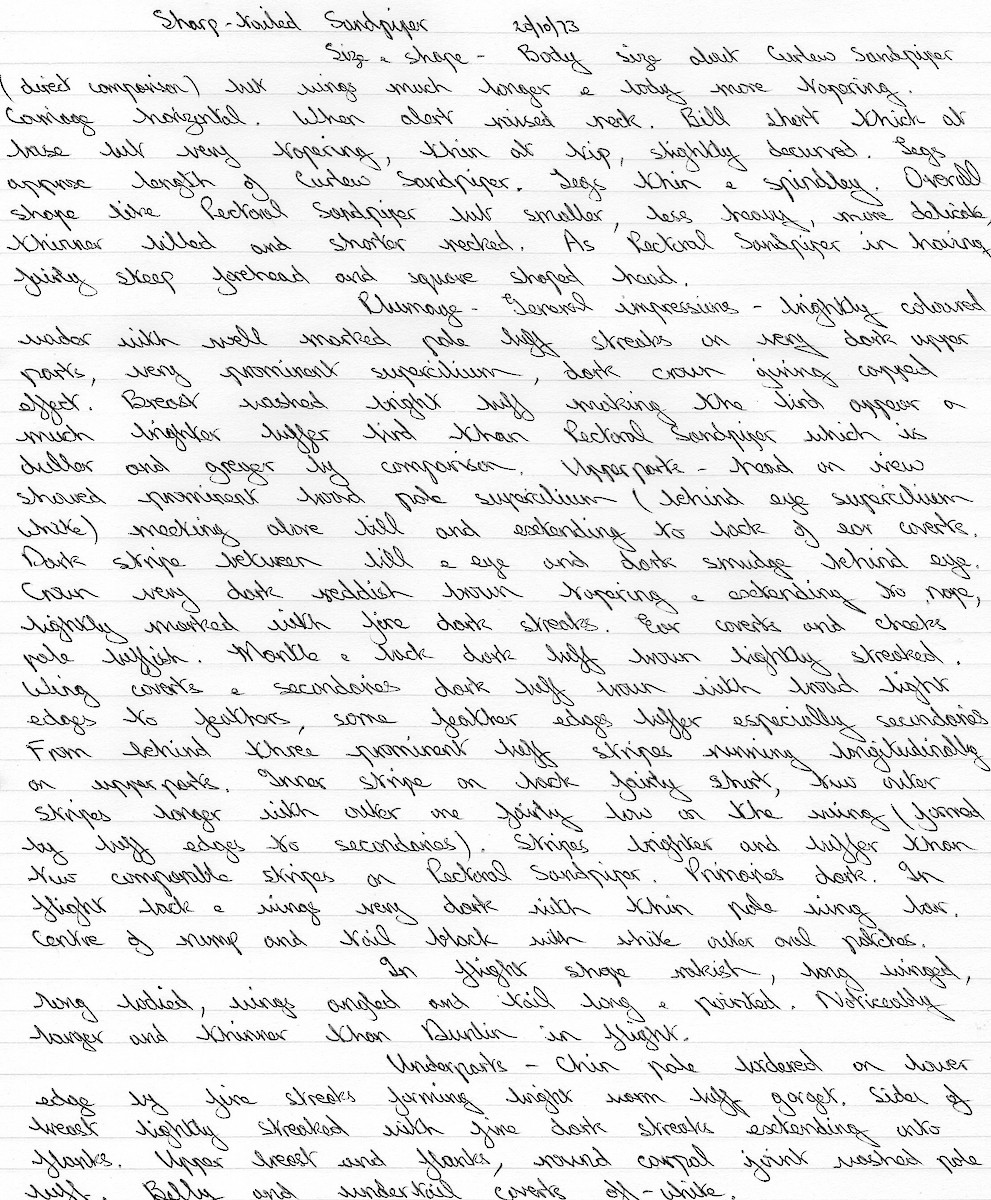 Sharp-tailed Sandpiper 20/10/73
Size & shape - Body size about Curlew Sandpiper
(direct comparison) but wings much longer & body more tapering.
Carriage horizontal. When alert raised neck. Bill short thick at
base but very tapering, thin at tip, slightly decurved. Legs
approx length of Curlew Sandpiper. Legs thin & spindley. Overall
shape like Pectoral Sandpiper but smaller, less heavy, more delicate,
thinner billed and shorter necked. As Pectoral Sandpiper in having
fairly steep forehead and square shaped head.
Plumage - General impressions - brightly coloured
wader with well marked pale buff streaks on very dark upper
parts, very prominent supercilium, dark crown giving capped
effect. Breast washed bright buff making the bird appear a
much brighter buffer bird than Pectoral Sandpiper which is
duller and greyer by comparison. Upperparts - head on view
showed prominent broad pale supercilium (behind eye supercilium
white) meeting above bill and extending to back of ear coverts.
Dark stripe between bill & eye and dark smudge behind eye.
Crown very dark reddish brown tapering & extending to nape,
lightly marked with fine dark streaks. Ear coverts and cheeks
pale buffish. Mantle & back dark buff brown lightly streaked.
Wing coverts & secondaries dark buff brown with broad light
edges to feathers, some feather edges buffer especially secondaries
From behind three prominent buff stripes running longitudinally
on upperparts. Inner stripe on back fairly short, two outer
stripes longer with outer one fairly low on the wing (formed
by buff edges to secondaries). Stripes brighter and buffer than
two comparable stripes on Pectoral Sandpiper. Primaries dark. In
flight back & wings very dark with thin pale wing bar.
Centre of rump and tail black with white outer oval patches.
In flight shape rakish, long winged,
long bodied, wings angled and tail long & pointed. Noticeably
larger and thinner than Dunlin in flight.
Underparts - Chin pale bordered on lower
edge by fine streaks forming bright warm buff gorget. Sides of
breast lightly streaked with fine dark streaks extending onto
flanks. Upper breast and flanks, round carpal joint washed pale
buff. Belly and undertail coverts off-white.